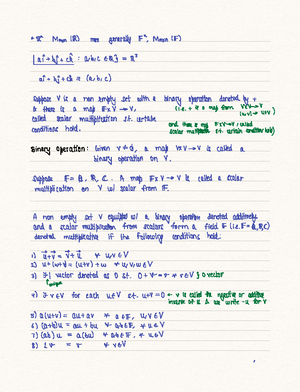 * ℝⁿ Mₘₓₙ (ℝ) more generally 𝔽ⁿ, Mₘₓₙ (𝔽)
{ aî + bĵ + ck̂ : a, b, c ∈ ℝ } = ℝ³
aî + bĵ + ck̂ ↔ (a, b, c)
Suppose V is a non empty set with a binary operation denoted by +
& there is a map 𝔽 × V → V, (i.e. + is a map from V×V → V
called scalar multiplication st. certain (u,v) → u+v
conditions hold. and there is map 𝔽×V → V, called
scalar multiplication s.t. certain condition hold)
Binary operation: Given V ≠ ∅, a map V×V → V is called a
binary operation on V.
Suppose 𝔽 = ℚ, ℝ, ℂ. A map 𝔽 × V → V is called a scalar
multiplication on V w/ scalar from 𝔽.
A non empty set V equipped w/ a binary operation denoted additively
and a scalar multiplication from scalars form a field 𝔽 (i.e. 𝔽 = ℚ, ℝ, ℂ)
denoted multiplicative if the following conditions hold.
1) u + v = v + u ∀ u, v ∈ V
2) u + (v + w) = (u + v) + w ∀ u, v, w ∈ V
3) ∃! vector denoted as 0 st. 0 + v = v ∀ v ∈ V } 0 vector
unique
4) ∃ v ∈ V for each u ∈ V st. u + v = 0 ← v is called the negative or additive
inverse of u & we write -u for v
5) a(u + v) = au + av ∀ a ∈ 𝔽, u, v ∈ V
6) (a + b) u = au + bu ∀ a, b ∈ 𝔽, ∀ u ∈ V
7) (ab) u = a(bu) ∀ a, b ∈ 𝔽, ∀ u ∈ V
8) 1.v = v ∀ v ∈ V